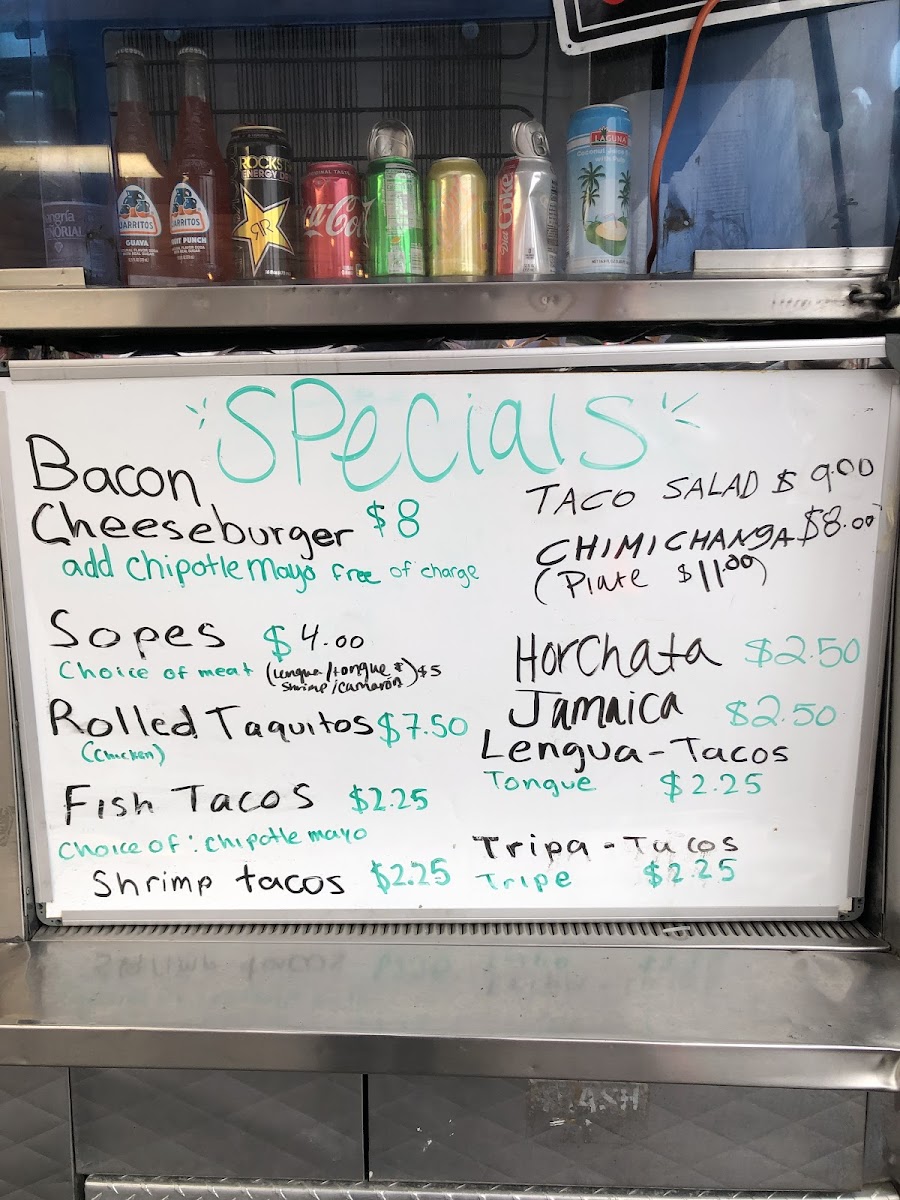 Sangría
SEÑORIAL
JARRITOS
GUAVA
JARRITOS
FRUIT PUNCH
ROCKSTAR
ENERGY DRINK
ORIGINAL TASTE
Coca-Cola
Diet Coke
LAGUNA
Coconut Juice
with Pulp
Specials
Bacon
Cheeseburger $8
add chipotle mayo free of charge
Sopes $4.00
Choice of meat (Lengua/tongue &
Shrimp/camaron) $5
Rolled Taquitos $7.50
(Chicken)
Fish Tacos $2.25
Choice of: chipotle mayo
Shrimp tacos $2.25
TACO SALAD $9.00
CHIMICHANGA $8.00
(Plate $11.00)
Horchata $2.50
Jamaica $2.50
Lengua-Tacos
Tongue $2.25
Tripa-Tacos
Tripe $2.25